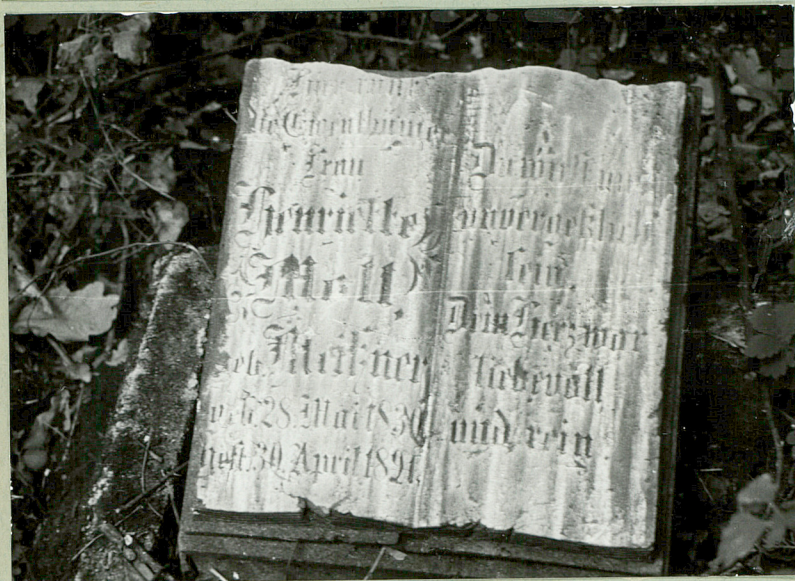 die Eigenthümer
Frau
Henriette
Moll,
geb.
geb. 28. Mai 183
gest. 30. April 189
Du wirst uns
unvergeßlich
sein.
Dein Herz war
liebevoll
und rein